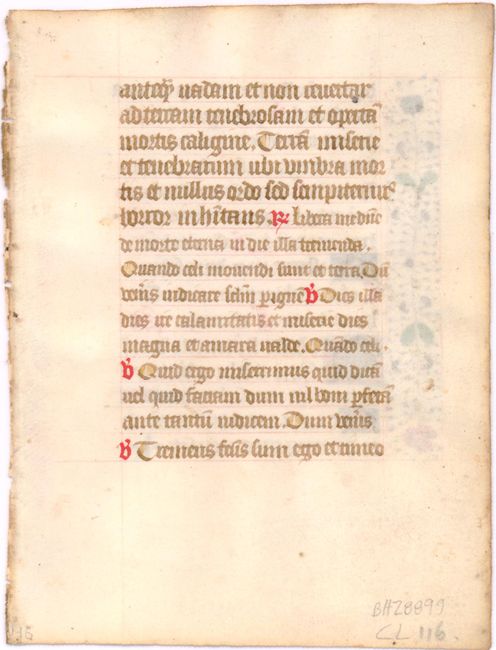 anteq̃ uadam et non reuertar
ad terram tenebrosam et opertã
mortis caligine. Terrã miserie
et tenebrarum ubi vmbra mor
tis et nullus ordo sed sempiternꝰ
horror inhĩtans. ℟ Libera me dñe
de morte eterna in die illa tremenda.
Quando celi mouendi sunt et terra. Dũ
veñis iudicare sc̃lm p̱ ignẽ ℣ Dies illa
dies ire calamitatis et miserie dies
magna et amara ualde. Quãdo celi.
℣ Quid ergo miserrimus quid dicã
uel quid faciam dum nil boni p̱ferã
ante tantũ iudicem. Dum veñis
℣ Tremens fc̃s sum ego et timeo
BHZ8899
CL 116.
116